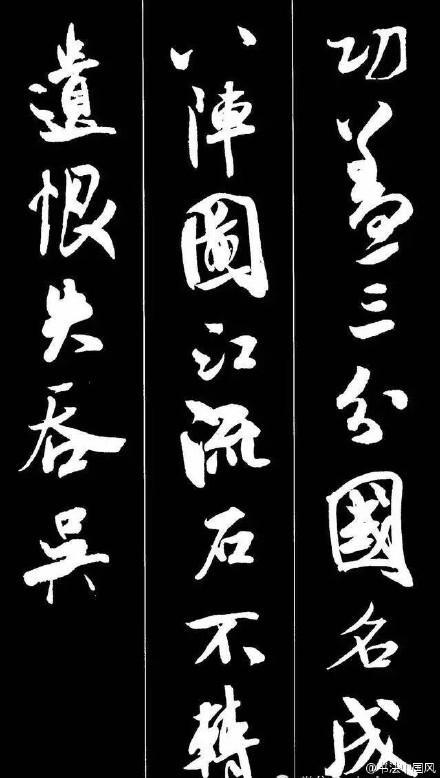 功蓋三分國名成
八陣圖江流石不轉
遺恨失吞吳
@书法中国风